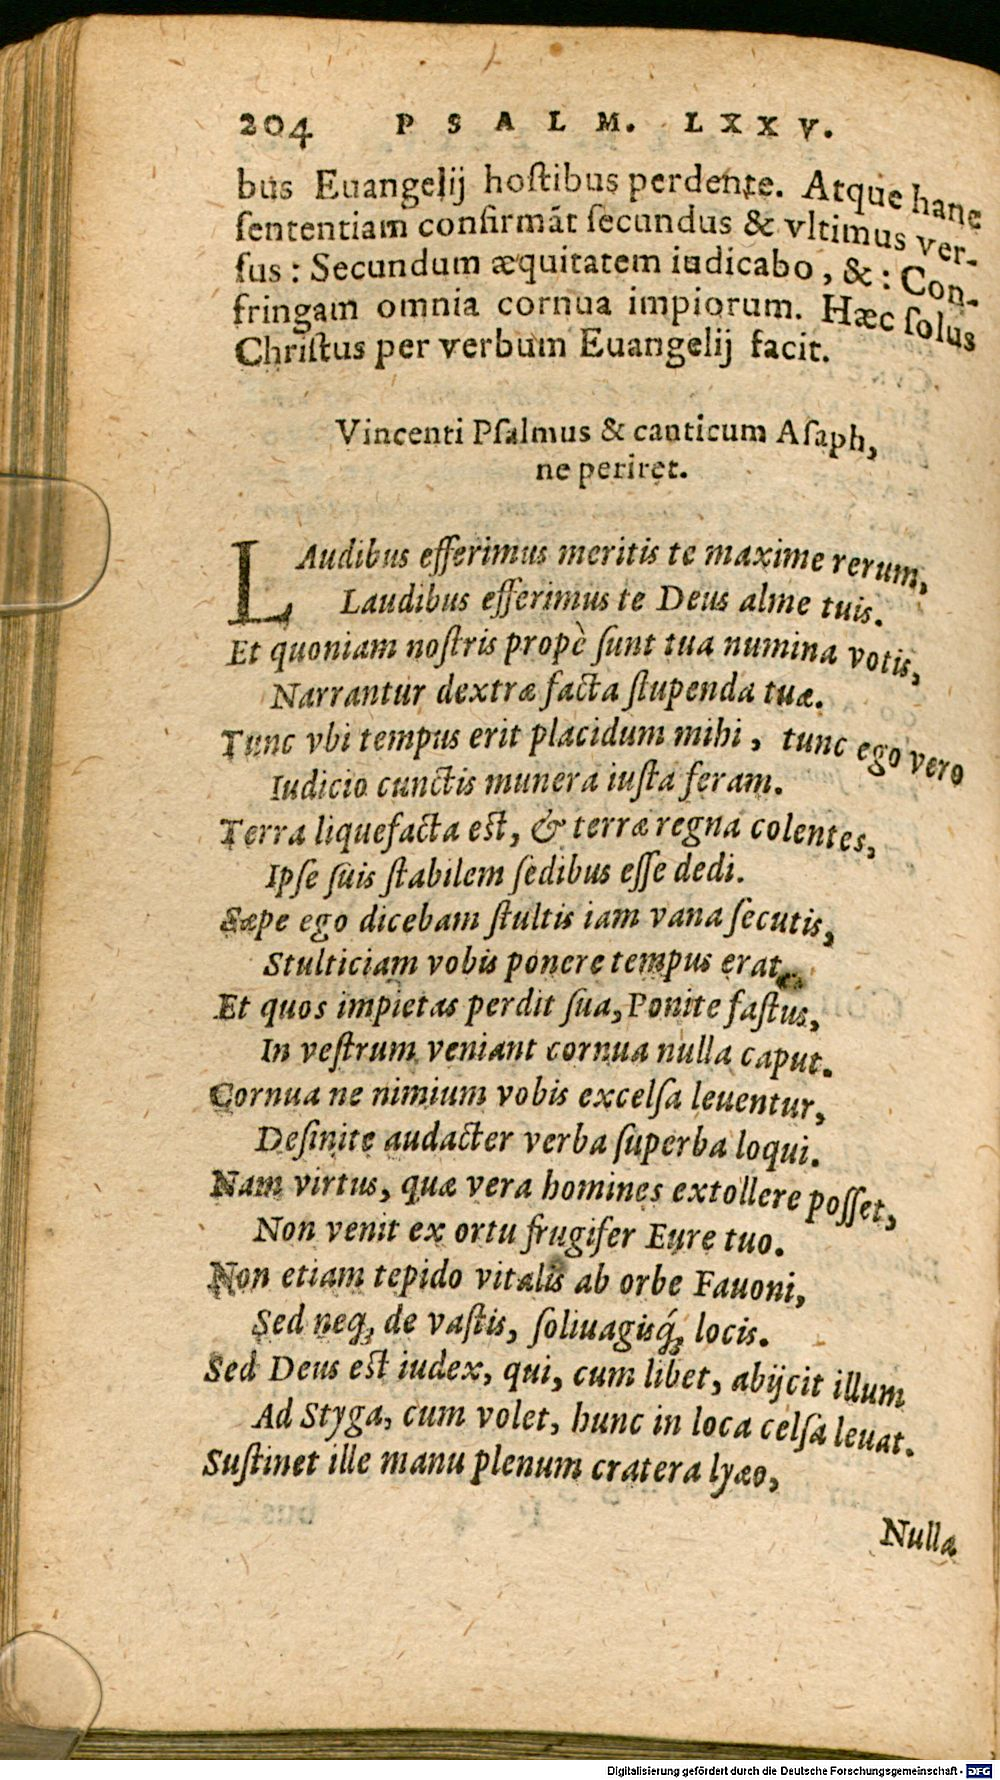 204 PSALM. LXXV.
bus Euangelij hoſtibus perdente. Atque hanc
ſententiam confirmãt ſecundus & vltimus ver-
ſus: Secundum æquitatem iudicabo, &: Con-
fringam omnia cornua impiorum. Hæc ſolus
Chriſtus per verbum Euangelij facit.
Vincenti Pſalmus & canticum Aſaph,
ne periret.
LAudibus efferimus meritis te maxime rerum,
Laudibus efferimus te Deus alme tuis.
Et quoniam noſtris propè ſunt tua numina votis,
Narrantur dextræ facta ſtupenda tuæ.
Tunc vbi tempus erit placidum mihi, tunc ego vero
Iudicio cunctis munera iuſta feram.
Terra liquefacta eſt, & terræ regna colentes,
Ipſe ſuis ſtabilem ſedibus eſſe dedi.
Sæpe ego dicebam ſtultis iam vana ſecutis,
Stulticiam vobis ponere tempus erat.
Et quos impietas perdit ſua, Ponite faſtus,
In veſtrum veniant cornua nulla caput.
Cornua ne nimium vobis excelſa leuentur,
Deſinite audacter verba ſuperba loqui.
Nam virtus, quæ vera homines extollere poſſet,
Non venit ex ortu frugifer Eure tuo.
Non etiam tepido vitalis ab orbe Fauoni,
Sed neq́; de vaſtis, ſoliuagisq́; locis.
Sed Deus eſt iudex, qui, cum libet, abijcit illum
Ad Styga, cum volet, hunc in loca celſa leuat.
Suſtinet ille manu plenum cratera lyæo,
Nulla
Digitalisierung gefördert durch die Deutsche Forschungsgemeinschaft - DFG